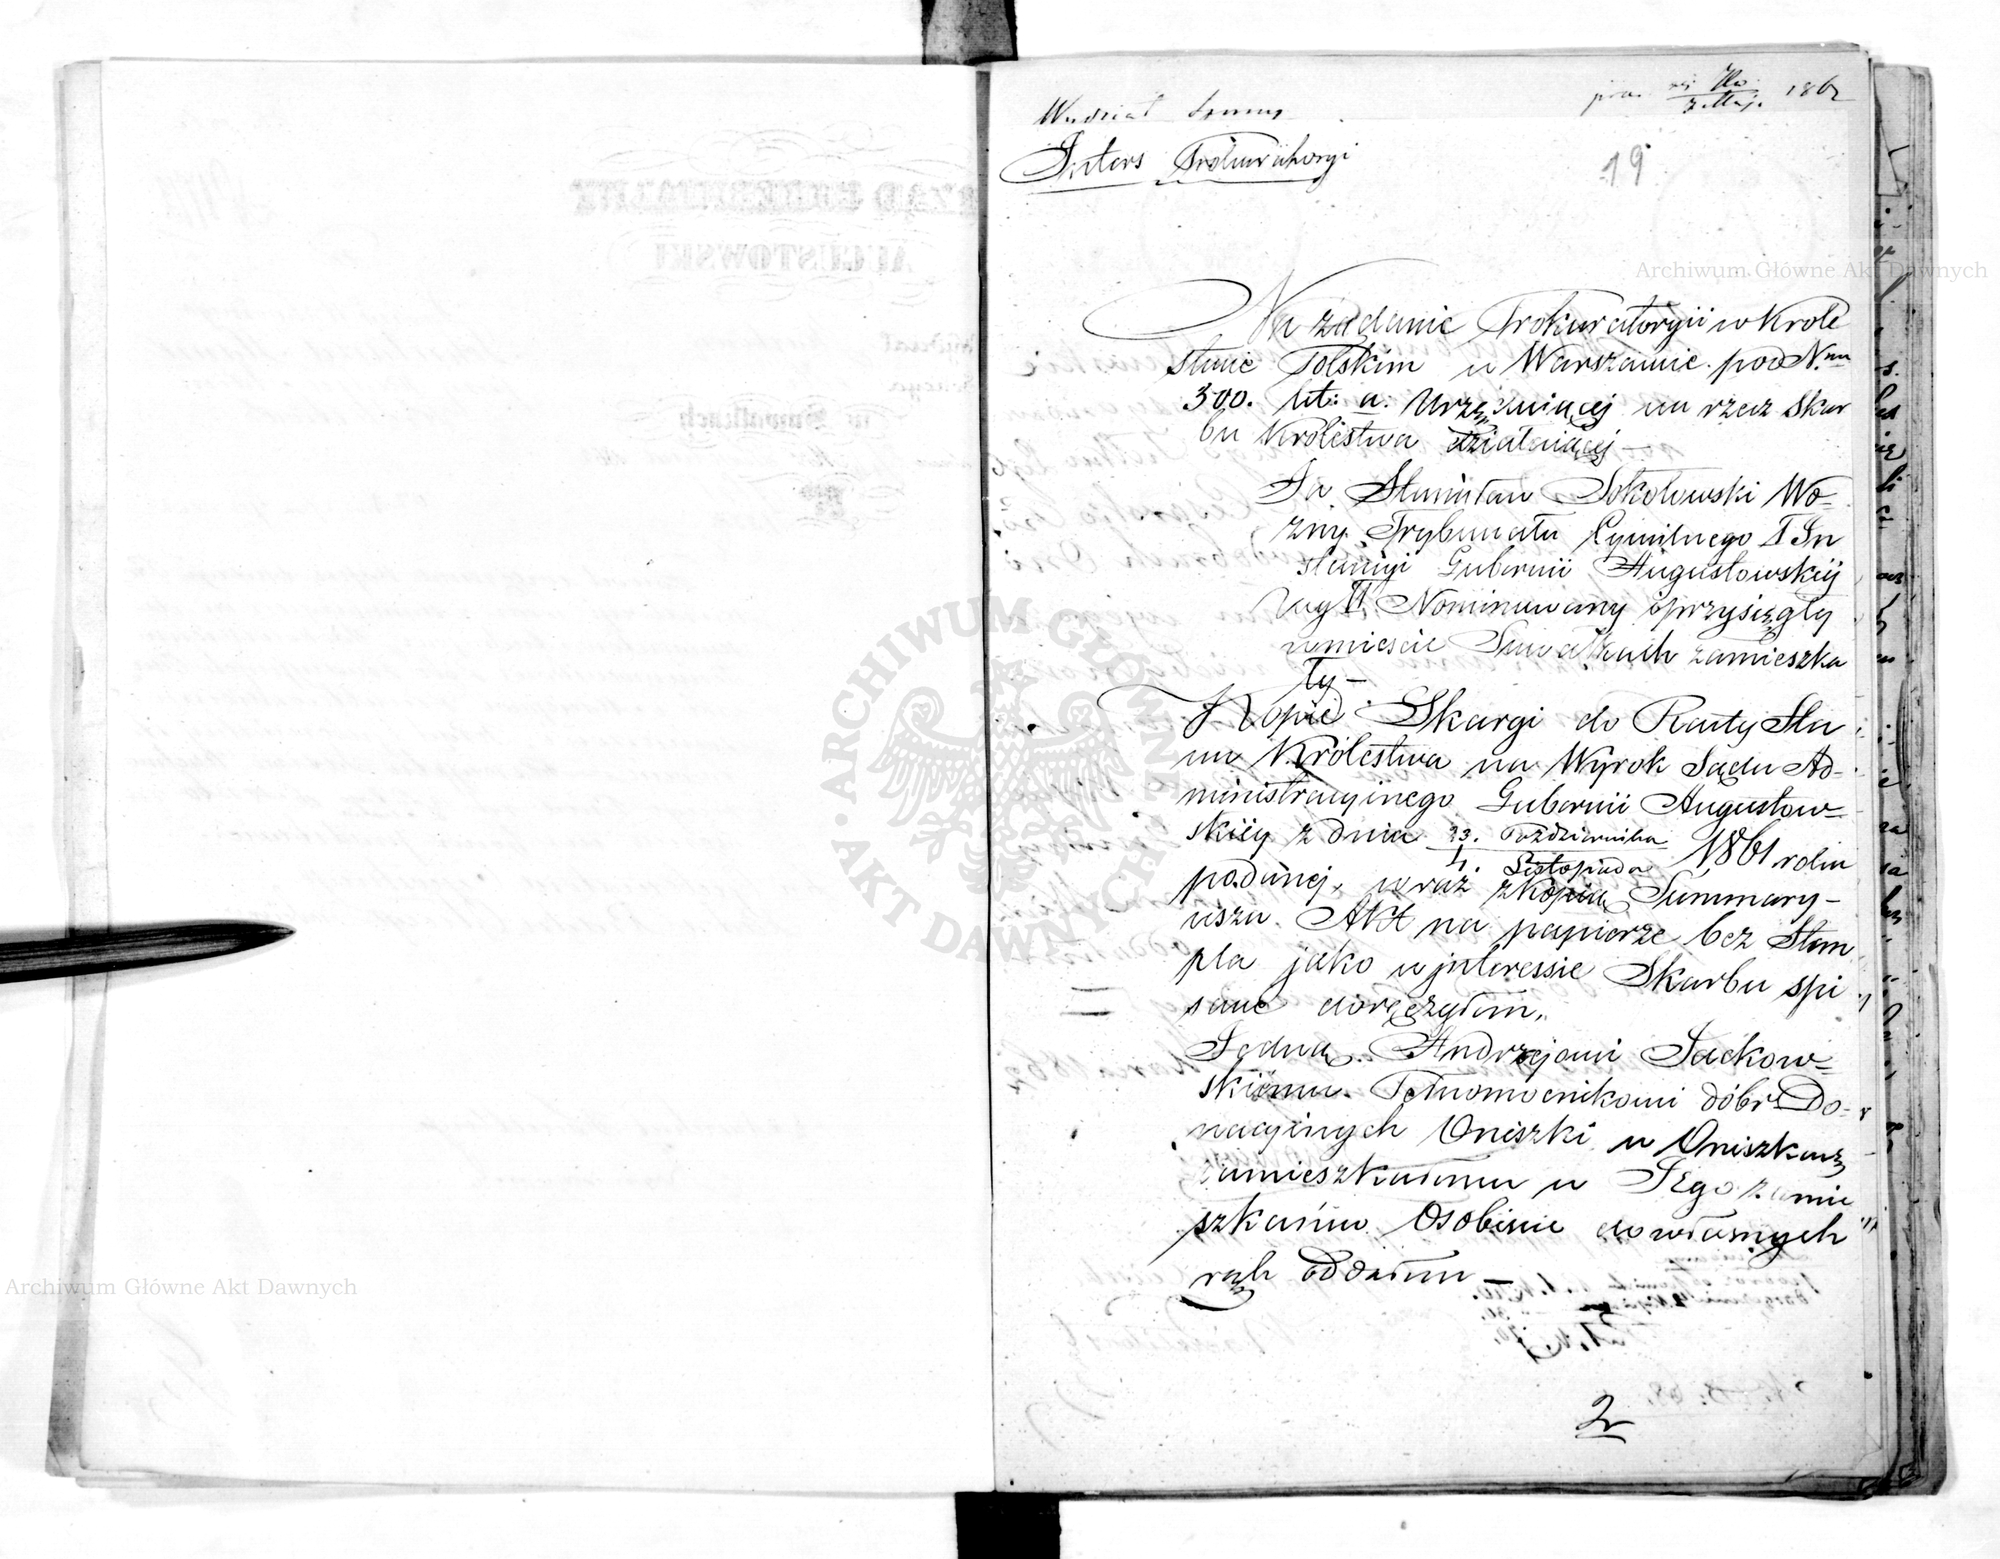 1862
Interes Prokuratoryi
19
Na żądanie Prokuratoryii w Króle
stwie Polskim w Warszawie pod Nrm
300. lit: a. Urzędującej na rzecz Skar
bu Królestwa działającej —
Ja Stanisław Sokołowski Wo-
zny Trybunału Cywilnego I In
stancyi Gubernii Augustowskiej
Nominowany i przysięgły
w mieście Suwałkach zamieszka
ły —
Kopie Skargi do Rady Sta
nu Królestwa na Wyrok Sądu Ad-
ministracyjnego Gubernii Augustow-
skiey z dnia 23. Października
4. Listopada 1861 roku
podanej, wraz z kopią Summary-
usza Akt na papierze bez Stem
pla jako w interessie Skarbu spi
sane doręczyłem,
Jedną Andrzejowi Sackow-
skiemu Pełnomocnikowi dóbr Do-
nacyinych Oniszki w Oniszkach
zamieszkałemu w Jego zamie
szkaniu Osobiście do własnych
rąk oddałem —
2
ARCHIWUM GŁÓWNE AKT DAWNYCH
Archiwum Główne Akt Dawnych
Archiwum Główne Akt Dawnych